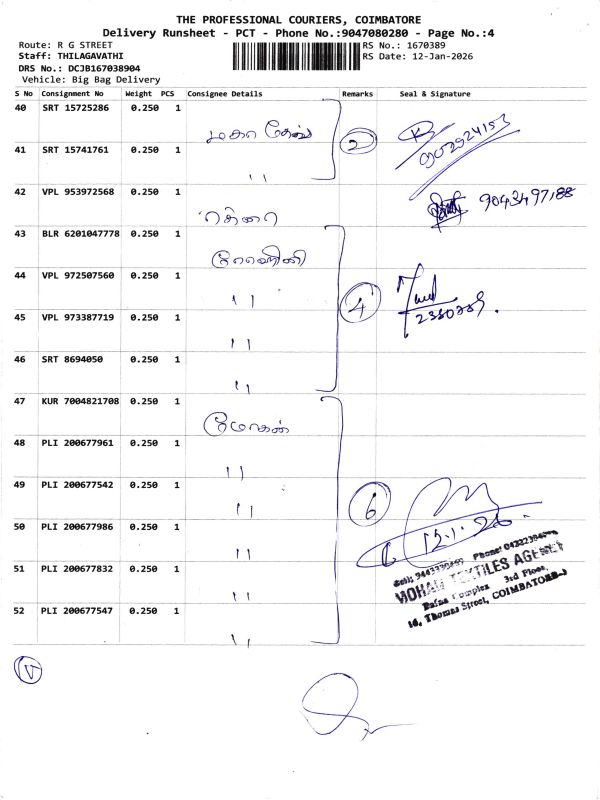 THE PROFESSIONAL COURIERS, COIMBATORE
Delivery Runsheet - PCT - Phone No.:9047080280 - Page No.:4
Route: R G STREET
RS No.: 1670389
Staff: THILAGAVATHI
RS Date: 12-Jan-2026
DRS No.: DCJB167038904
Vehicle: Big Bag Delivery
S No Consignment No Weight PCS Consignee Details Remarks Seal & Signature
40 SRT 15725286 0.250 1
மகா 2
41 SRT 15741761 0.250 1
"
42 VPL 953972568 0.250 1
9043497188
43 BLR 6201047778 0.250 1
44 VPL 972507560 0.250 1
" 4
45 VPL 973387719 0.250 1
"
46 SRT 8694050 0.250 1
"
47 KUR 7004821708 0.250 1
மோகன்
48 PLI 200677961 0.250 1
"
49 PLI 200677542 0.250 1
" 6
50 PLI 200677986 0.250 1
" 12.1.26
51 PLI 200677832 0.250 1
"
52 PLI 200677547 0.250 1
"
MOHAN TEXTILES AGENCY
Complex 3rd Floor,
16, Thomas Street, COIMBATORE-1
V